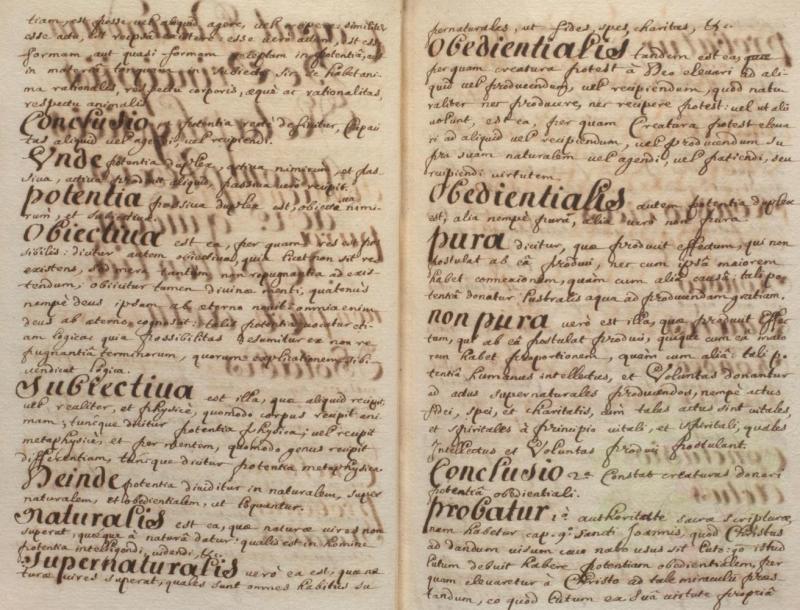 tiam, est posse vel aliquid agere, vel recipere: similiter
esse actu, est recipsa existere: esse vero actum, est esse
formam aut quasi formam receptam in potentiâ,
in mat subiecto, sive habet ani
ma rationalis, respectu corporis, æque ac rationalitas,
respectu animalis.
Conclusio potentia definitur, Capaci
tas aliquid vel agendi, vel recipiendi.
Vnde potentia duplex activa nimirum, et pas
siva, activa producit aliquid, passiva vero recipit.
potentia passiva duplex est, obiectiva nimi
rum, et subiectiva.
Obiectiua est ea, per quam res est pos
sibilis: dicitur autem obiectiva, quia licet non sit re
existens, sed mera tantum non repugnantia ad exis
tendum, obiicitur tamen divinæ menti, quatenus
nempe deus ipsam ab eterno novit: omnia enim
deus ab æterno cognoscit: talis potentia vocatur eti
am logica: quia possibilitas desumitur ex non re
pugnantia terminorum, quorum explicationem sibi
vendicat logica.
Subiectiua est illa, quæ aliquid recipit,
vel realiter, et physicè, quomodo corpus recipit ani
mam; tuncque dicitur potentia physica; vel recipit
metaphysicè, et per mentem, quomodo genus recipit
differentiam, tuncque dicitur potentia metaphysica.
Deinde potentia dividitur in naturalem, super
naturalem, et obedientialem, ut loquuntur.
Naturalis est ea, quæ naturæ vires non
superat, quæque à naturâ datur; qualis est in homine
potentia intelligendi, videndi, &c.
Supernaturalis verò ea est, quæ na
turæ vires superat, quales sunt omnes habitus su
pernaturales, ut fides, spes, charitas, &c.
Obedientialis tandem est ea, quæ
per quam creatura potest à Deo elevari ad ali
quid vel producendum, vel recipiendum, quod natu
raliter nec producere, nec recipere potest: vel ut alii
volunt, est ea, per quam Creatura potest eleva
ri ad aliquid vel recipiendum, vel producendum su
pra suam naturalem vel agendi, vel patiendi, seu
recipiendi virtutem.
Obedientialis autem potentia duplex
est, alia nempe pura, alia vero non pura.
pura dicitur, quæ producit effectum, qui non
postulat ab eâ produci, nec cum ipsâ maiorem
habet connexionem, quam cum aliâ causâ; tali po
tentiâ donatur lustralis aqua ad producendam gratiam.
non pura verò est illa, quæ producit Effec
tum, qui ab eâ postulat produci, quique cum ea maio
rem habet proportionem, quàm cum aliâ: tali po
tentiâ humanus intellectus, et Voluntas donantur
ad actus supernaturales producendos, nempè actus
fidei, spei, et charitatis, cum tales actus sint vitales,
et spiritales à principio vitali, et spiritali, quales
Intellectus et Voluntas produci postulant.
Conclusio 2ª Constat creaturas donari
potentiâ obedientiali.
probatur 1º authoritate sacræ scripturæ,
nam habetur cap. 9º sancti Joannis, quod Christus
ad dandum visum cæco nato usus sit luto: go istud
lutum debuit habere potentiam obedientialem, per
quam elevaretur à Christo ad tale miraculum præs
tandum, eo quod lutum ea suâ virtute propriâ